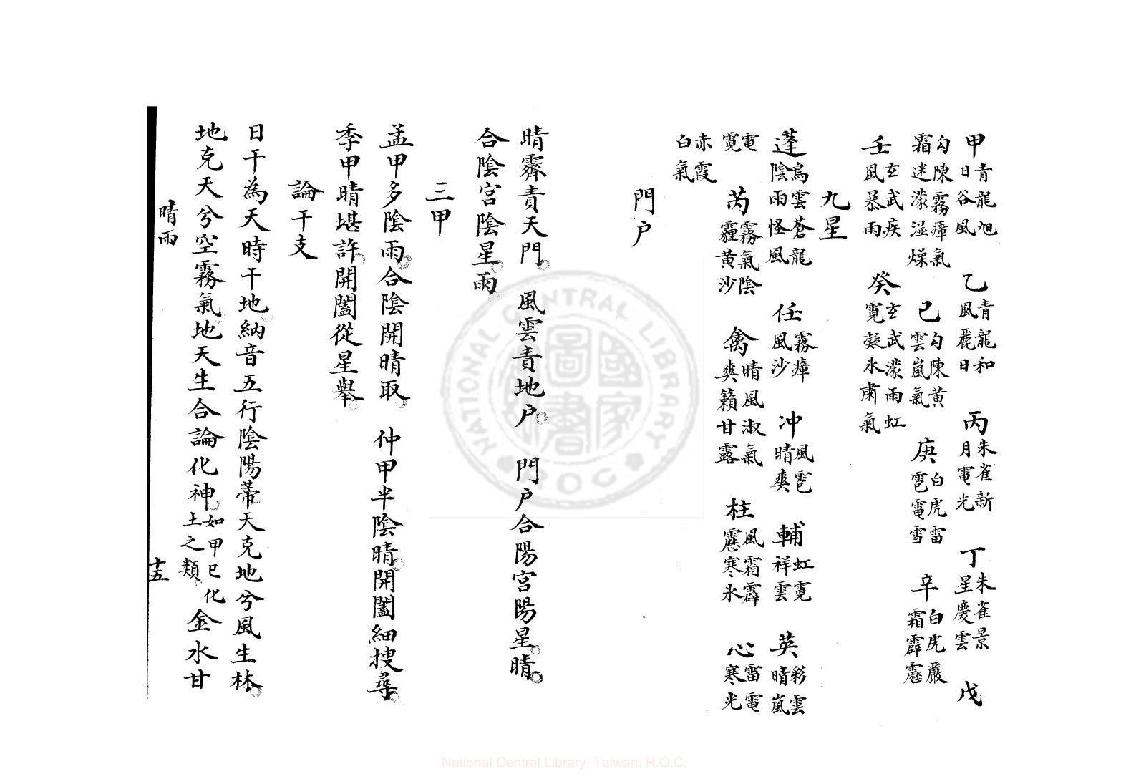 甲青龍旭日谷風　乙青龍和風麗日　丙朱雀新月電光　丁朱雀景星慶雲　戊
勾陳霧瘴氣霜迷濛溫燥　己勾陳黃雲嵐氣　庚白虎雷雹電雪　辛白虎嚴霜霹靂
壬玄武疾風暴雨　癸玄武濛雨虹霓凝氷肅氣
九星
蓬烏雲蒼龍陰雨怪風　任霧瘴風沙　冲風雹晴爽　輔虹霓祥雲　英彩雲晴嵐電霓
芮霧氣陰霾黃沙　禽晴風淑氣爽籟甘露　柱風霜霹靂寒氷　心雷電寒光
赤霞白氣
門戶
晴霽責天門風雲責地戶　門戶合陽宮陽星晴
合陰宮陰星雨
三甲
孟甲多陰雨合陰開晴取　仲甲半陰晴開闔細搜尋
季甲晴堪許開闔從星舉
論干支
日干為天時干地納音五行陰陽蒂天克地兮風生林
地克天兮空霧氣地天生合論化神如甲巳化土之類金水甘
晴雨
十五
NATIONAL CENTRAL LIBRARY
R.O.C.
國家圖書館
National Central Library, Taiwan, R.O.C.